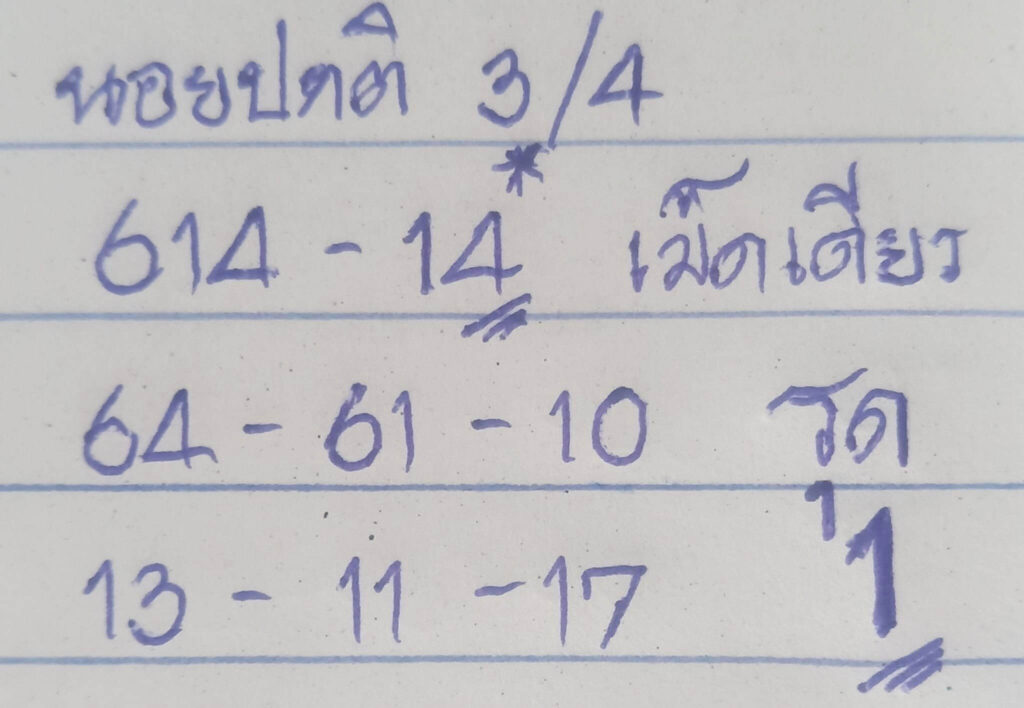 นอยปกติ 3/4
614 - 14* เม็ดเดียว
64 - 61 - 10 รูด
13 - 11 - 17 1